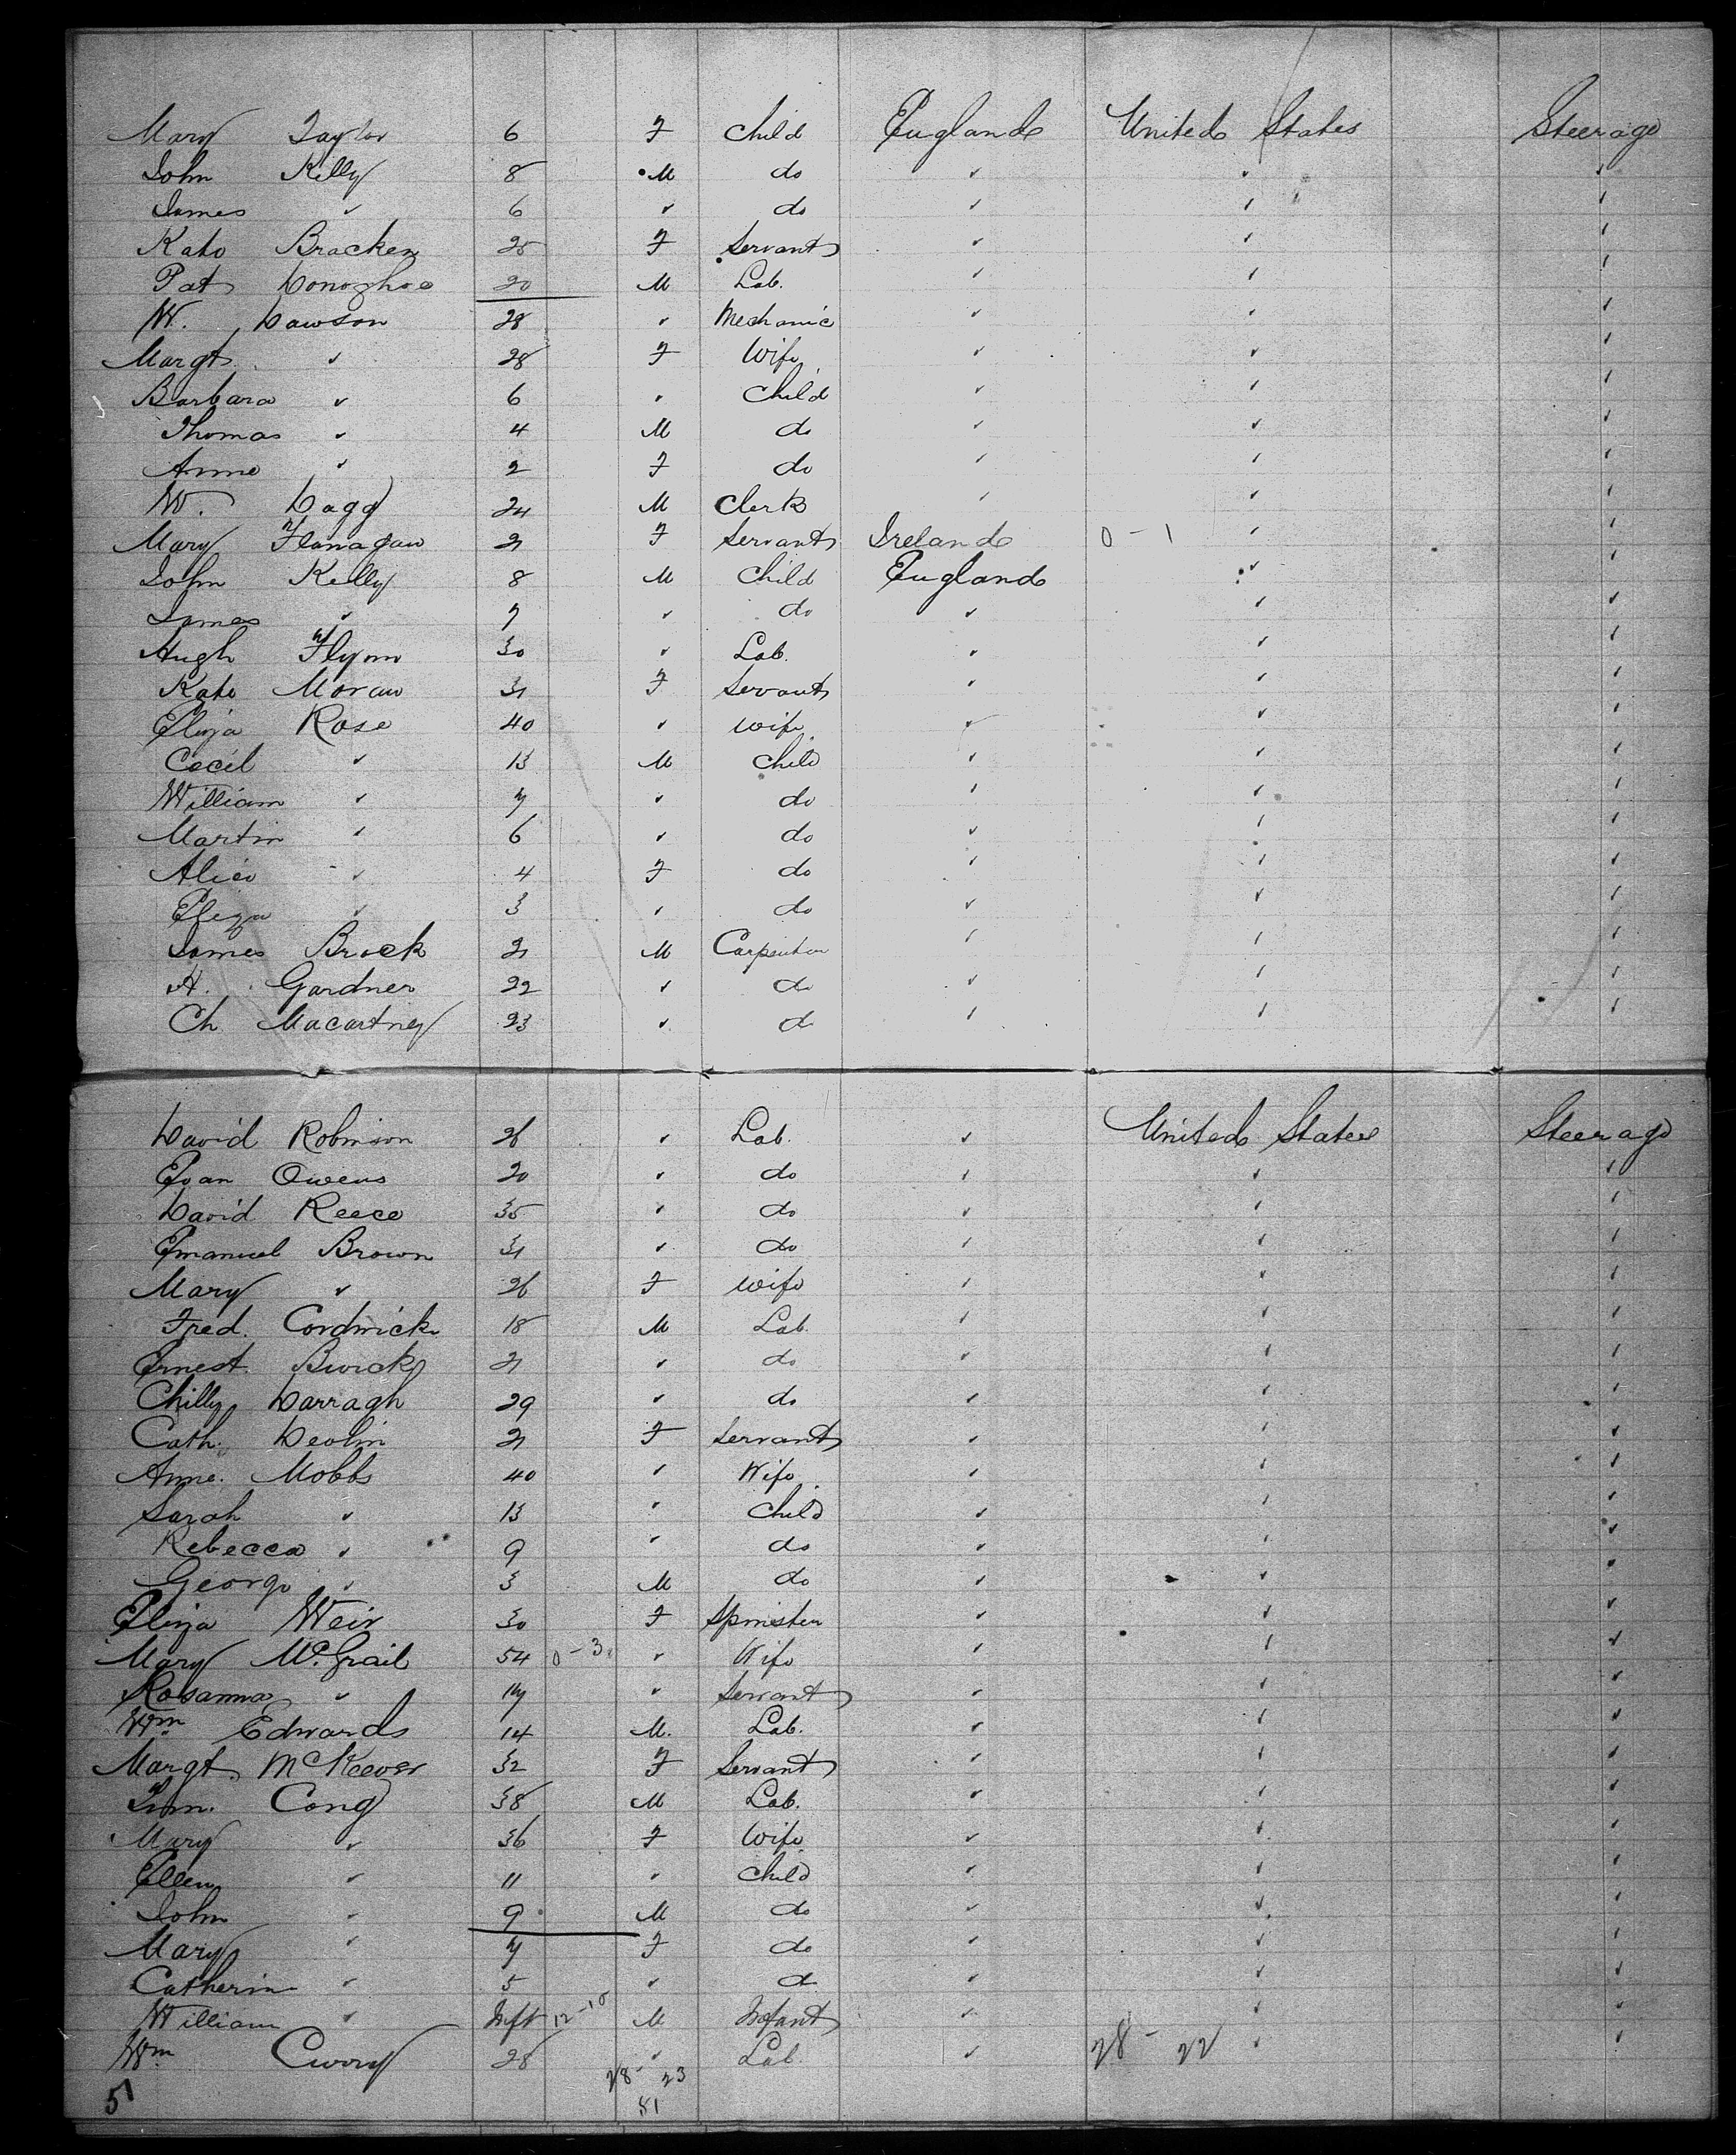 Mary Taylor 6 F Child England United States Steerage
John Kelly 8 M do " " "
James " 6 " do " " "
Kate Bracken 25 F Servant " " "
Pat Donoghoe 20 M Lab. " " "
W. Dawson 28 " Mechanic " " "
Margt. " 28 F Wife " " "
Barbara " 6 " Child " " "
Thomas " 4 M do " " "
Anne " 2 F do " " "
W. Dagg 24 M Clerk " " "
Mary Flanagan 21 F Servant Ireland 0-1 " "
John Kelly 8 M Child England " "
James " 7 " do " " "
Hugh Flynn 30 " Lab. " " "
Kate Moran 31 F Servant " " "
Eliza Rose 40 " Wife " " "
Cecil " 13 M Child " " "
William " 7 " do " " "
Martin " 6 " do " " "
Alice " 4 F do " " "
Eliza " 3 " do " " "
James Brock 21 M Carpenter " " "
H. Gardner 22 " do " " "
Ch. Macartney 23 " do " " "
David Robinson 26 " Lab. " United States Steerage
Evan Owens 20 " do " " "
David Reece 35 " do " " "
Emanuel Brown 31 " do " " "
Mary " 26 F Wife " " "
Fred. Cordwick 18 M Lab. " " "
Ernest 21 " do " " "
Chilly Darragh 29 " do " " "
Cath. Devlin 21 F Servant " " "
Anne. Mobbs 40 " Wife " " "
Sarah " 13 " Child " " "
Rebecca " 9 " do " " "
George " 3 M do " " "
Eliza Weir 30 F Spinster " " "
Mary McGrail 54 0-3 " Wife " " "
Rosanna " 17 " Servant " " "
Wm Edwards 14 M. Lab. " " "
Margt. McKeever 32 F Servant " " "
Cong 38 M Lab. " " "
Mary " 36 F Wife " " "
Ellen " 11 " Child " " "
John " 9 M do " " "
Mary " 7 F do " " "
Catherine " 5 " do " " "
William " Inft 12-10 M Infant " " "
Wm 28 " Lab " 28-22 " "
28-23
51 81